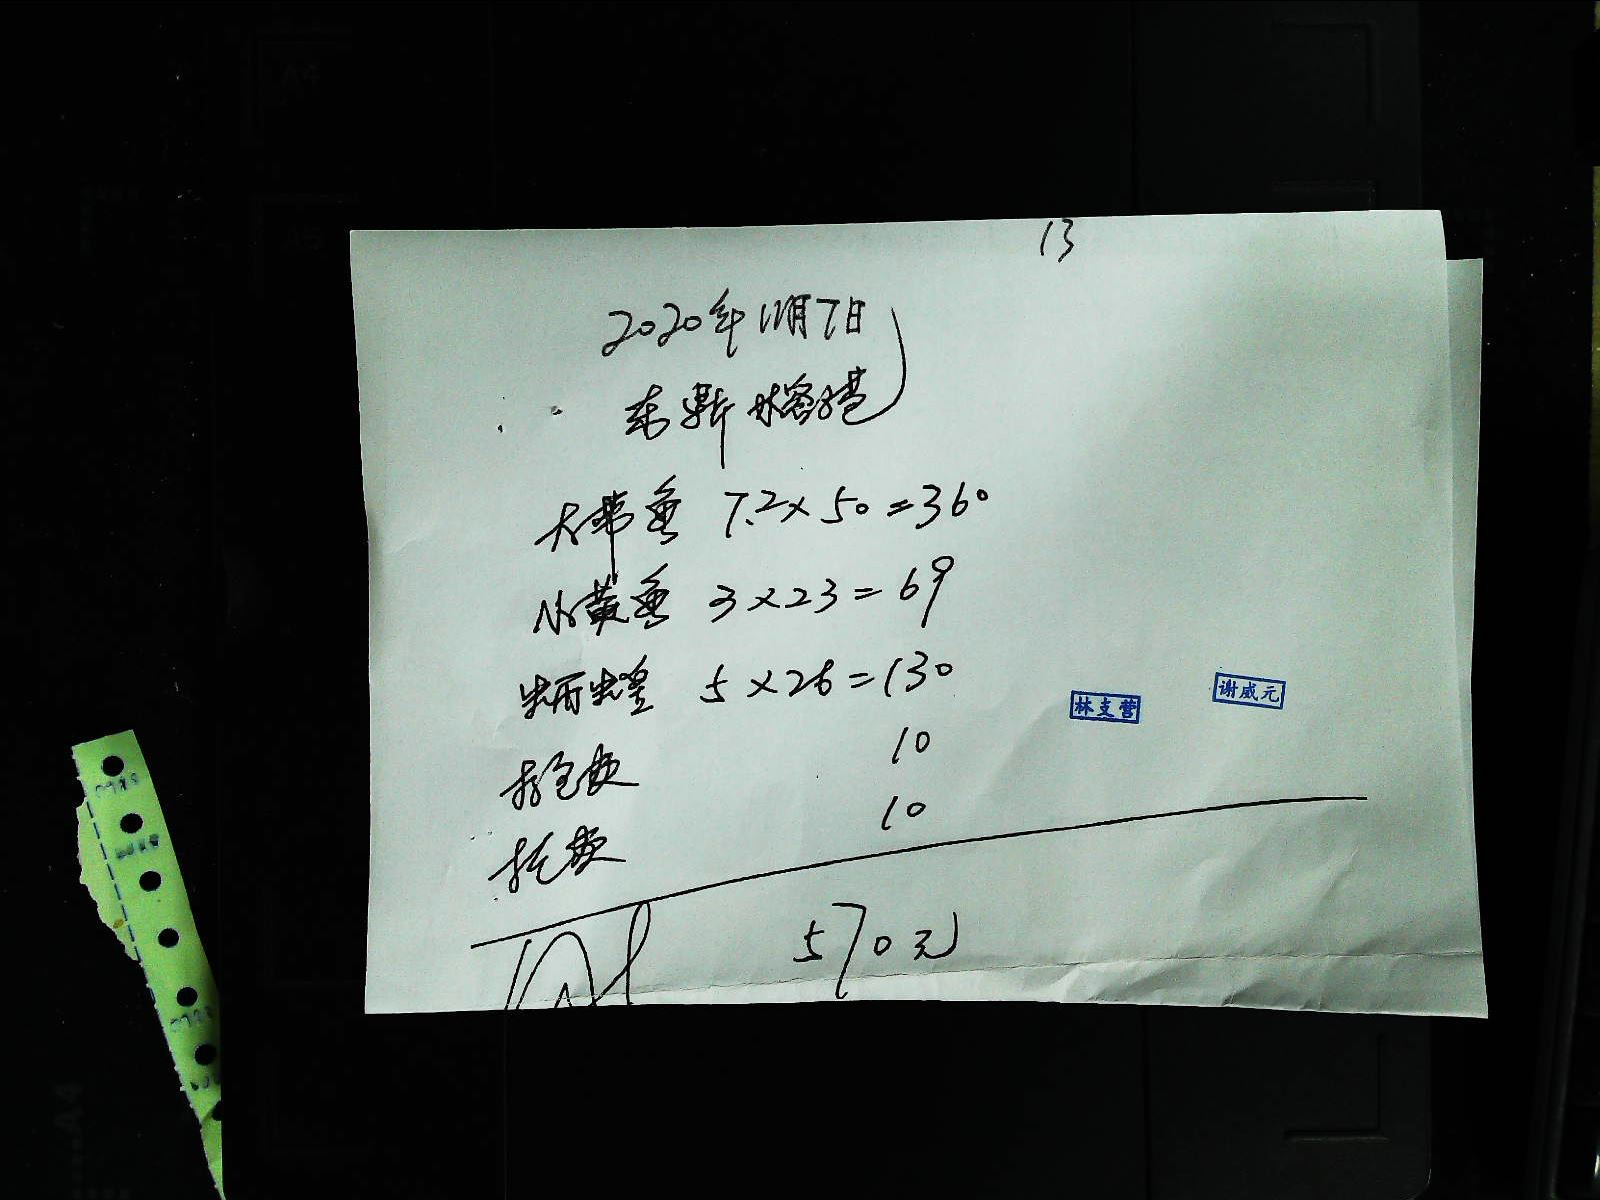 13
2020年11月7日
东新榕港
大带鱼 7.2×50=360
小黄鱼 3×23=69
5×26=130
林支营
谢威元
打包费 10
托费 10
570元